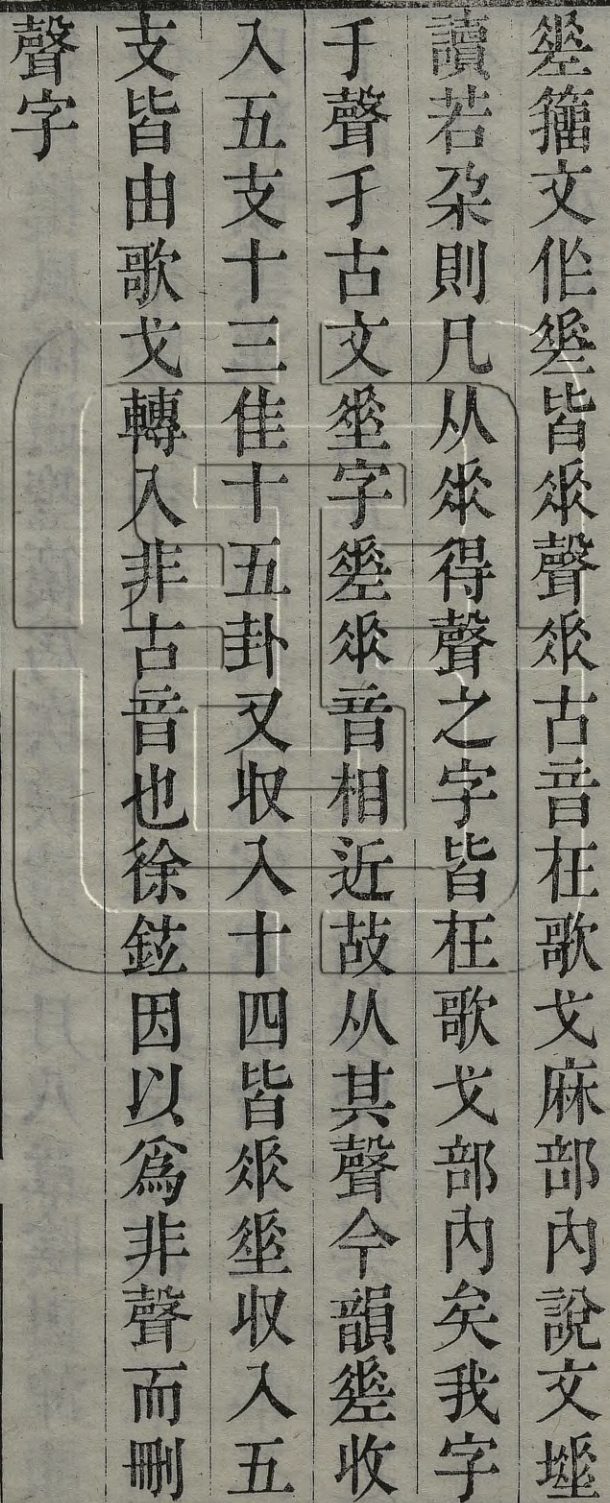 𢀩籒文作𢀩皆𠂹聲𠂹古音在歌戈麻部內說文𡍮
讀若朶則凡从𠂹得聲之字皆在歌戈部內矣我字
手聲手古文埀字𢀩𠂹音相近故从其聲今韻𢀩收
入五支十三佳十五卦又収入十四皆𠂹埀収入五
支皆由歌戈轉入非古音也徐鉉因以爲非聲而刪
聲字